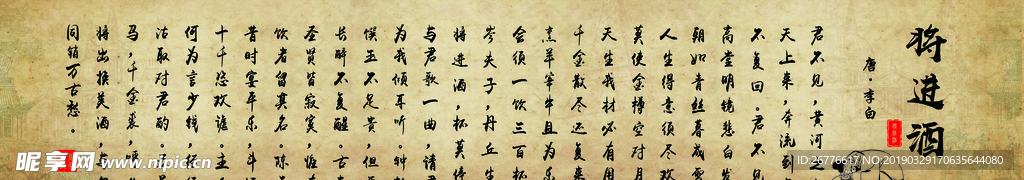 将进酒
唐·李白
君不见,黄河之
天上来,奔流到
不复回。君不见
高堂明镜悲白发
朝如青丝暮成雪
人生得意须尽欢
莫使金樽空对月
天生我材必有用
千金散尽还复来
烹羊宰牛且为乐
会须一饮三百杯
岑夫子,丹丘生
将进酒,杯莫停
与君歌一曲,请
为我倾耳听。钟
馔玉不足贵,但
长醉不复醒。古
圣贤皆寂寞,惟
饮者留其名。陈
昔时宴平乐,斗
十千恣欢谑。主
何为言少钱,径
沽取对君酌。五
马,千金裘,呼
将出换美酒
同销万古愁。
昵享网 www.nipic.cn
ID:26776617 NO:20190329170635644080